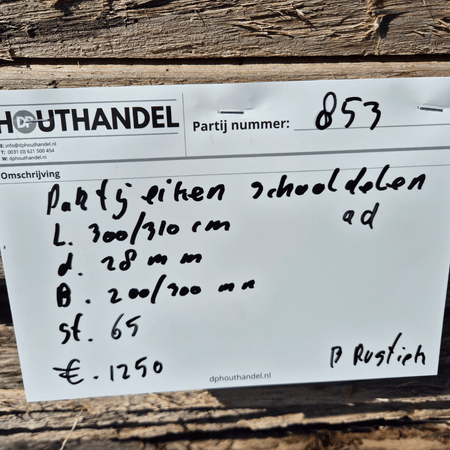 HOUTHANDEL
DP
Partij nummer: 853
E: info@dphouthandel.nl
T: 0031 (0) 621 500 454
W: dphouthandel.nl
Omschrijving
Partij eiken schooldelen
ad
L. 300/310 cm
d. 28 mm
B. 200/300 mm
st. 65
€. 1250
B Rustiek
dphouthandel.nl